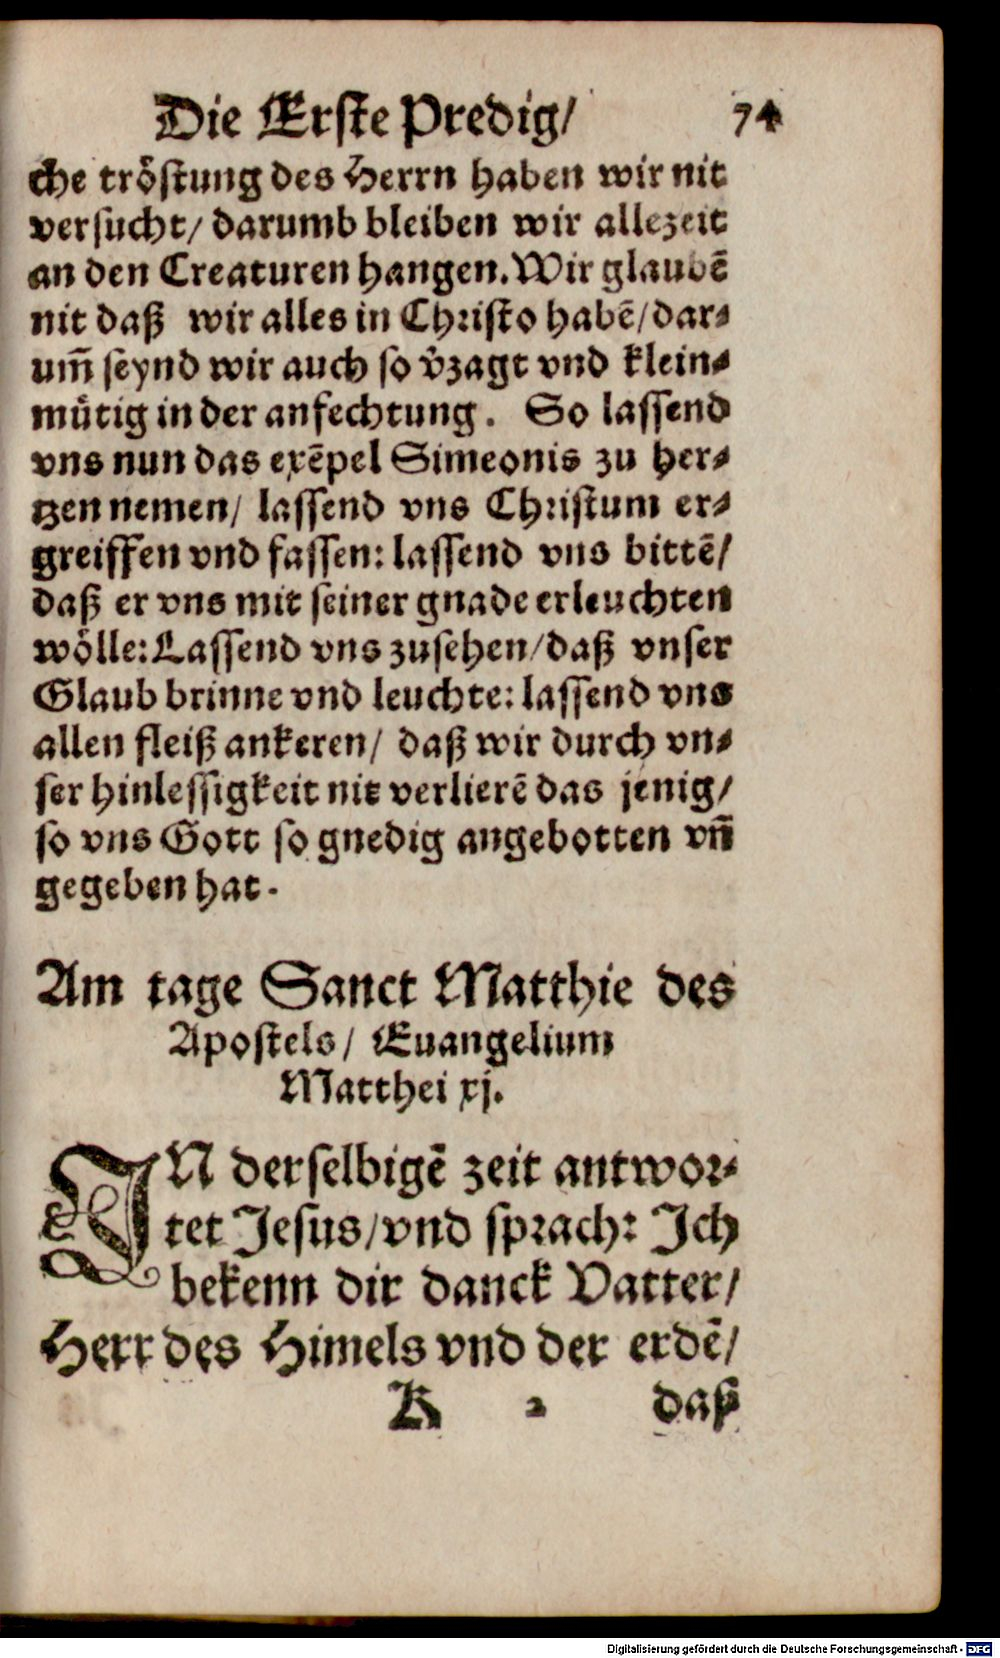 Die Erste Predig/ 74
che tröstung des Herrn haben wir nit
versucht/ darumb bleiben wir allezeit
an den Creaturen hangen. Wir glaubē
nit daß wir alles in Christo habē/ dar⸗
um̄ seynd wir auch so v̊zagt vnd klein⸗
mütig in der anfechtung. So lassend
vns nun das exēpel Simeonis zu her⸗
tzen nemen/ lassend vns Christum er⸗
greiffen vnd fassen: lassend vns bittē/
daß er vns mit seiner gnade erleuchten
wölle: Lassend vns zusehen/ daß vnser
Glaub brinne vnd leuchte: lassend vns
allen fleiß ankeren/ daß wir durch vn⸗
ser hinlessigkeit nit verlierē das jenig/
so vns Gott so gnedig angebotten vn̄
gegeben hat.
Am tage Sanct Matthie des
Apostels/ Euangelium
Matthei xj.
IN derselbigē zeit antwor⸗
tet Jesus/ vnd sprach: Ich
bekenn dir danck Vatter/
Herr des Himels vnd der erdē/
K 2 daß
Digitalisierung gefördert durch die Deutsche Forschungsgemeinschaft - DFG